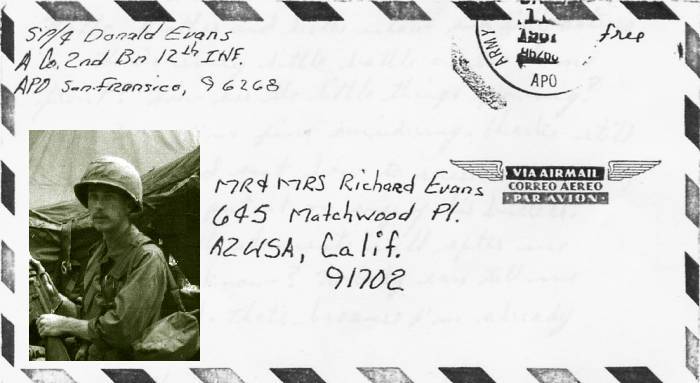 SP/4 Donald Evans
A Co. 2nd Bn 12th INF.
APO San.Fransico, 96268
ARMY
APO
free
VIA AIRMAIL
CORREO AEREO
PAR AVION
MR & MRS Richard Evans
645 Matchwood Pl.
AZUSA, Calif.
91702